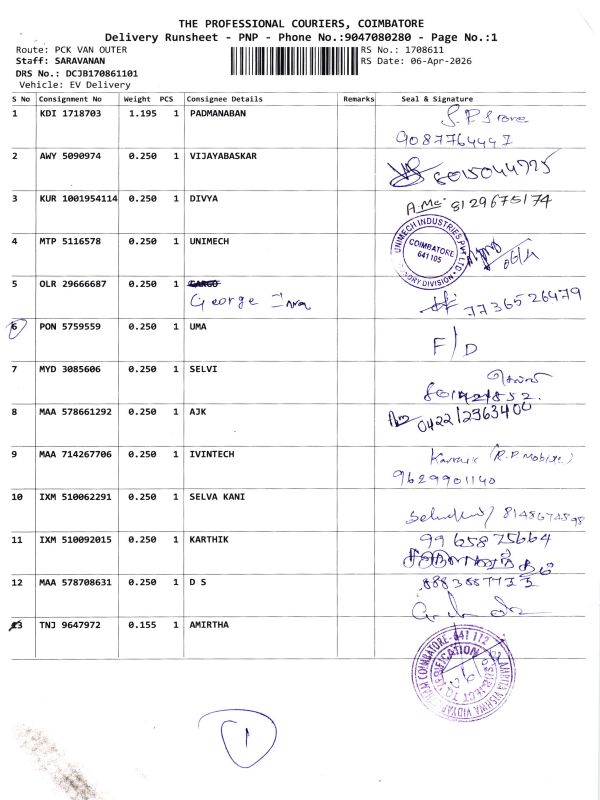 THE PROFESSIONAL COURIERS, COIMBATORE
Delivery Runsheet - PNP - Phone No.:9047080280 - Page No.:1
Route: PCK VAN OUTER RS No.: 1708611
Staff: SARAVANAN RS Date: 06-Apr-2026
DRS No.: DCJB170861101
Vehicle: EV Delivery
S No Consignment No Weight PCS Consignee Details Remarks Seal & Signature
1 KDI 1718703 1.195 1 PADMANABAN S.P Store
9087764447
2 AWY 5090974 0.250 1 VIJAYABASKAR
3 KUR 1001954114 0.250 1 DIVYA 8129675174
4 MTP 5116578 0.250 1 UNIMECH UNIMECH INDUSTRIES PVT LTD COIMBATORE 641 105 DIVISION
5 OLR 29666687 0.250 1 CARGO
George 7736526479
6 PON 5759559 0.250 1 UMA F/D
7 MYD 3085606 0.250 1 SELVI
8 MAA 578661292 0.250 1 AJK 0422/2963400
9 MAA 714267706 0.250 1 IVINTECH (R.P Mobile)
9629901140
10 IXM 510062291 0.250 1 SELVA KANI 8148674898
11 IXM 510092015 0.250 1 KARTHIK 9965875664
12 MAA 578708631 0.250 1 D S
13 TNJ 9647972 0.155 1 AMIRTHA AMRITA VISHWA VIDYAPEETHAM COIMBATORE-641 112 SUBJECT TO VERIFICATION
1